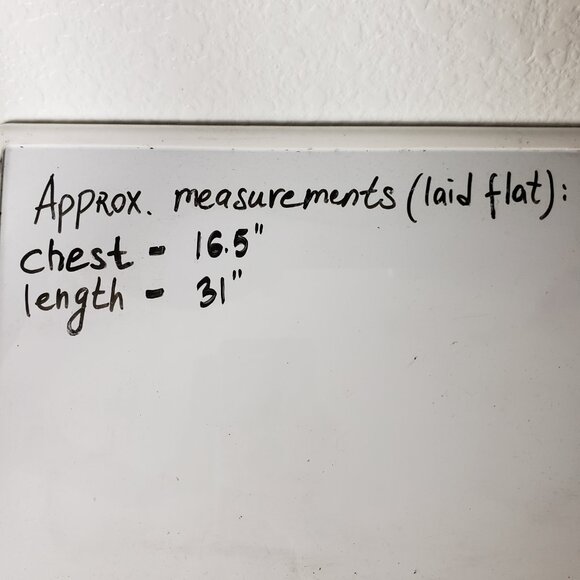 Approx. measurements (laid flat):
chest - 16.5"
length - 31"